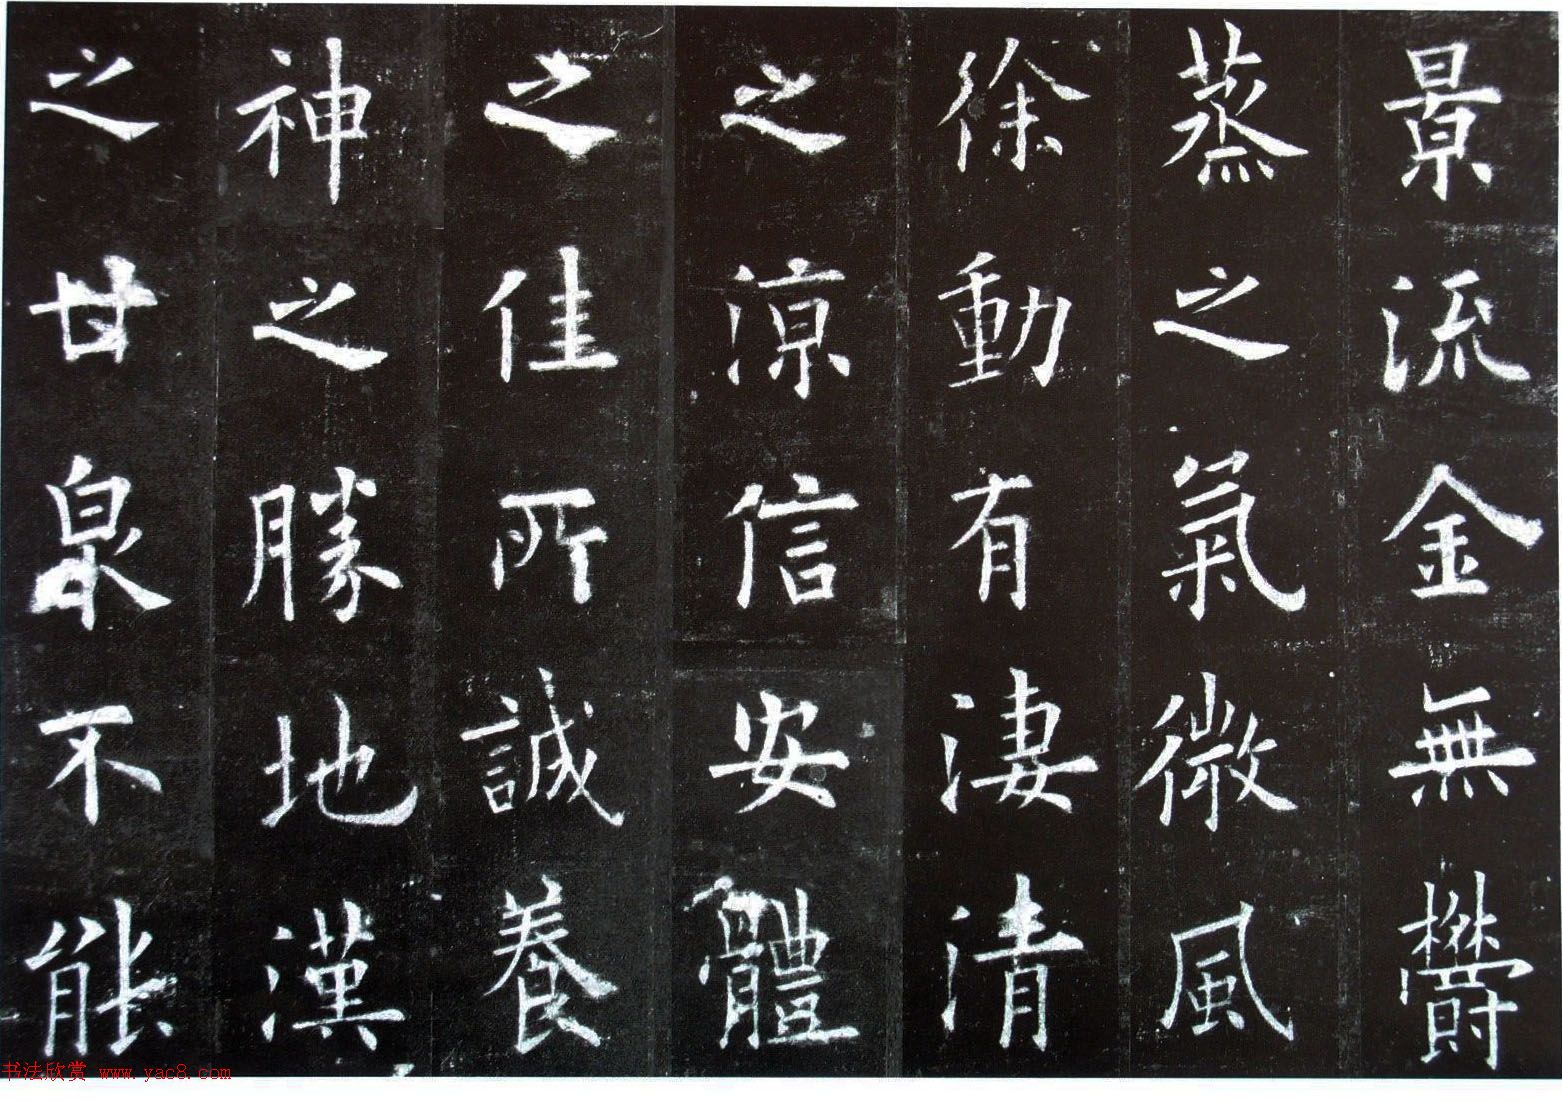 景流金無欝
蒸之氣微風
徐動有淒清
之涼信安體
之佳所誠養
神之勝地漢
之甘泉不能
书法欣赏 www.yac8.com